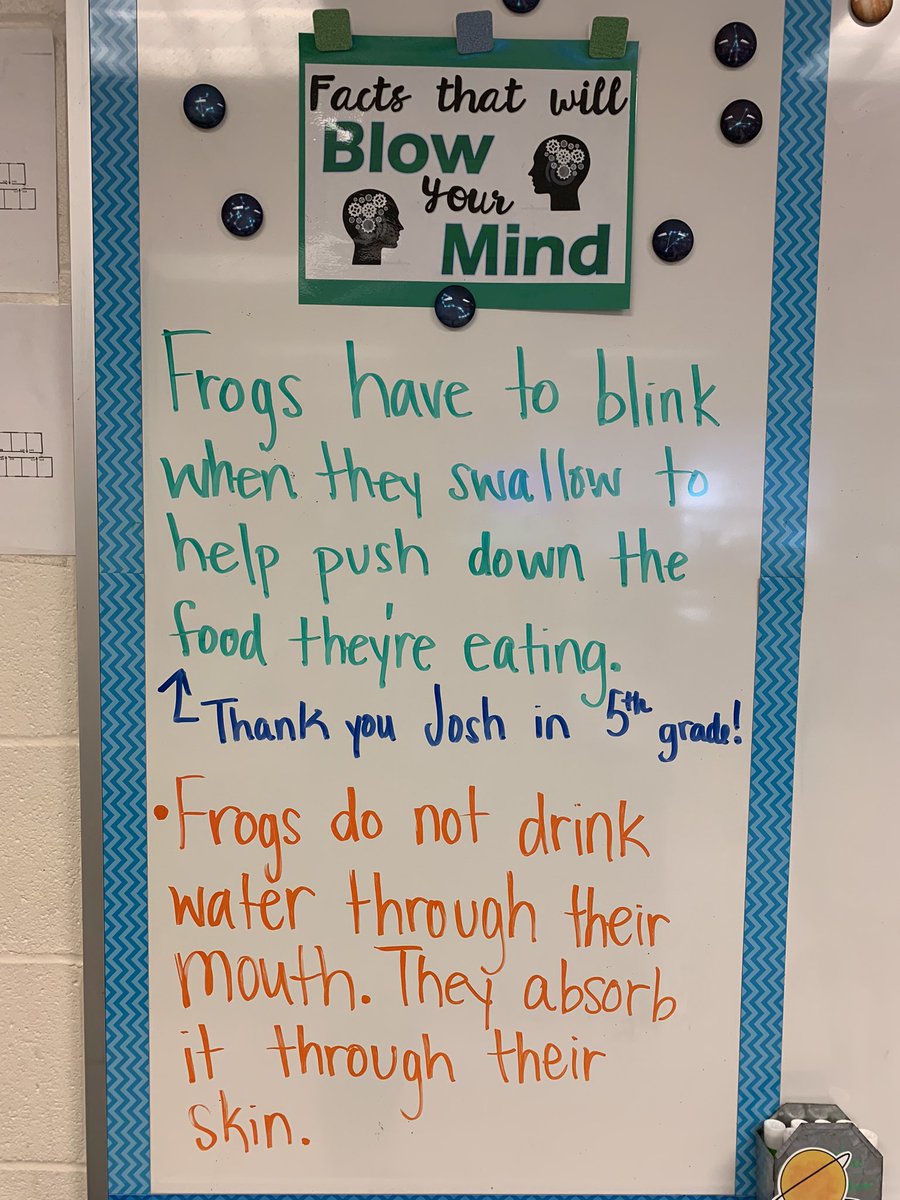 Facts that will
Blow
your
Mind
Frogs have to blink
when they swallow to
help push down the
food they're eating.
Thank you Josh in 5th grade!
• Frogs do not drink
water through their
mouth. They absorb
it through their
skin.